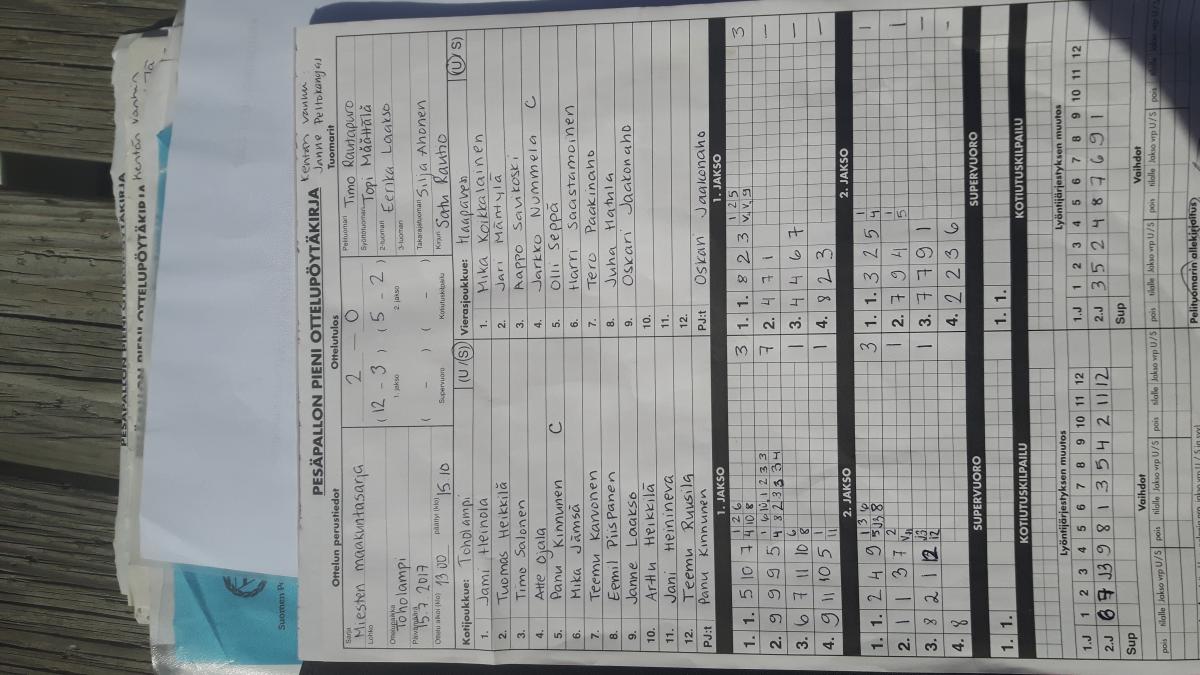 PESÄPALLON PIENI OTTELUPÖYTÄKIRJA
Kentän vanhin
Janne Peltokangas
Ottelun perustiedot
Ottelutulos
Tuomarit
Sarja
Miesten maakuntasarja
Lohko
Ottelupaikka
Toholampi
Päivämäärä
15.7.2017
Ottelu alkoi (klo) 13 00 päättyi (klo) 15 10
2 — 0
(12 - 3) (5 - 2)
1. jakso 2. jakso
( - ) ( - )
Supervuoro Kotiutuskilpailu
Pelituomari Timo Rautapuro
Syöttötuomari Topi Määttälä
2-tuomari Eerika Laakso
3-tuomari
Takarajatuomari Silja Ahonen
Kirjuri Satu Rauho
Kotijoukkue: Toholampi (U/S)
1. Jami Heinola
2. Tuomas Heikkilä
3. Timo Salonen
4. Atte Ojala
5. Panu Kinnunen C
6. Mika Jämsä
7. Teemu Karvonen
8. Eemil Piispanen
9. Janne Laakso
10. Arttu Heikkilä
11. Jani Hemineva
12. Teemu Ruusila
PJ:t Panu Kinnunen
Vierasjoukkue: Haapavesi (U/S)
1. Mika Koikkalainen
2. Jari Mäntylä
3. Aappo Savikoski
4. Jarkko Nummela C
5. Olli Seppä
6. Harri Saastamoinen
7. Tero Paakinaho
8. Juha Hatula
9. Oskari Jaakonaho
10.
11.
12.
PJ:t Oskari Jaakonaho
1. JAKSO
1. 1. 5 10 7 3
2. 9 9 5 7
3. 6 7 11 10 1
4. 9 11 10 5 1
2. JAKSO
1. 1. 2 4 9 3
2. 1 1 3 7 1
3. 8 2 1 12 1
4. 8
SUPERVUORO
1. 1.
KOTIUTUSKILPAILU
1. JAKSO
1. 1. 8 2 3 3
2. 4 7 1 –
3. 4 4 6 7 –
4. 8 2 3 –
2. JAKSO
1. 1. 3 2 5 1
2. 7 9 4 1
3. 7 7 9 1 –
4. 2 2 3 6 -
SUPERVUORO
1. 1.
KOTIUTUSKILPAILU
Lyöntijärjestyksen muutos
1.J 1 2 3 4 5 6 7 8 9 10 11 12
2.J 6 7 J3 9 8 1 3 5 4 2 11 12
Sup
Vaihdot
pois tilalle Jakso vrp U/S pois tilalle Jakso vrp U/S
Lyöntijärjestyksen muutos
1.J 1 2 3 4 5 6 7 8 9 10 11 12
2.J 3 5 2 4 8 7 6 9 1
Sup
Vaihdot
pois tilalle Jakso vrp U/S pois tilalle Jakso vrp U/S
Pelituomarin allekirjoitus